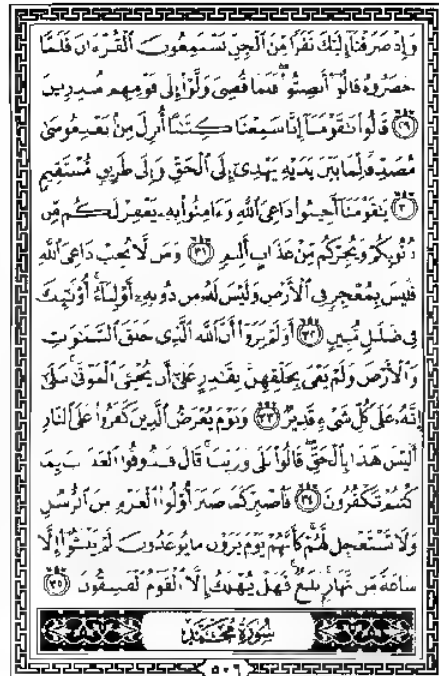 وَإِذْ صَرَفْنَآ إِلَيْكَ نَفَرًا مِّنَ ٱلْجِنِّ يَسْتَمِعُونَ ٱلْقُرْءَانَ فَلَمَّا
حَضَرُوهُ قَالُوٓا۟ أَنصِتُوا۟ ۖ فَلَمَّا قُضِىَ وَلَّوْا۟ إِلَىٰ قَوْمِهِم مُّنذِرِينَ
﴿٢٩﴾ قَالُوا۟ يَٰقَوْمَنَآ إِنَّا سَمِعْنَا كِتَٰبًا أُنزِلَ مِنۢ بَعْدِ مُوسَىٰ
مُصَدِّقًا لِّمَا بَيْنَ يَدَيْهِ يَهْدِىٓ إِلَى ٱلْحَقِّ وَإِلَىٰ طَرِيقٍ مُّسْتَقِيمٍ
﴿٣٠﴾ يَٰقَوْمَنَآ أَجِيبُوا۟ دَاعِىَ ٱللَّهِ وَءَامِنُوا۟ بِهِۦ يَغْفِرْ لَكُم مِّن
ذُنُوبِكُمْ وَيُجِرْكُم مِّنْ عَذَابٍ أَلِيمٍ ﴿٣١﴾ وَمَن لَّا يُجِبْ دَاعِىَ ٱللَّهِ
فَلَيْسَ بِمُعْجِزٍ فِى ٱلْأَرْضِ وَلَيْسَ لَهُۥ مِن دُونِهِۦٓ أَوْلِيَآءُ ۚ أُو۟لَٰٓئِكَ
فِى ضَلَٰلٍ مُّبِينٍ ﴿٣٢﴾ أَوَلَمْ يَرَوْا۟ أَنَّ ٱللَّهَ ٱلَّذِى خَلَقَ ٱلسَّمَٰوَٰتِ
وَٱلْأَرْضَ وَلَمْ يَعْىَ بِخَلْقِهِنَّ بِقَٰدِرٍ عَلَىٰٓ أَن يُحْۦِىَ ٱلْمَوْتَىٰ ۚ بَلَىٰٓ
إِنَّهُۥ عَلَىٰ كُلِّ شَىْءٍ قَدِيرٌ ﴿٣٣﴾ وَيَوْمَ يُعْرَضُ ٱلَّذِينَ كَفَرُوا۟ عَلَى ٱلنَّارِ
أَلَيْسَ هَٰذَا بِٱلْحَقِّ ۖ قَالُوا۟ بَلَىٰ وَرَبِّنَا ۚ قَالَ فَذُوقُوا۟ ٱلْعَذَابَ بِمَا
كُنتُمْ تَكْفُرُونَ ﴿٣٤﴾ فَٱصْبِرْ كَمَا صَبَرَ أُو۟لُوا۟ ٱلْعَزْمِ مِنَ ٱلرُّسُلِ
وَلَا تَسْتَعْجِل لَّهُمْ ۚ كَأَنَّهُمْ يَوْمَ يَرَوْنَ مَا يُوعَدُونَ لَمْ يَلْبَثُوٓا۟ إِلَّا
سَاعَةً مِّن نَّهَارٍۭ ۚ بَلَٰغٌ ۚ فَهَلْ يُهْلَكُ إِلَّا ٱلْقَوْمُ ٱلْفَٰسِقُونَ ﴿٣٥﴾
سُورَةُ مُحَمَّدٍ
٥٠٦